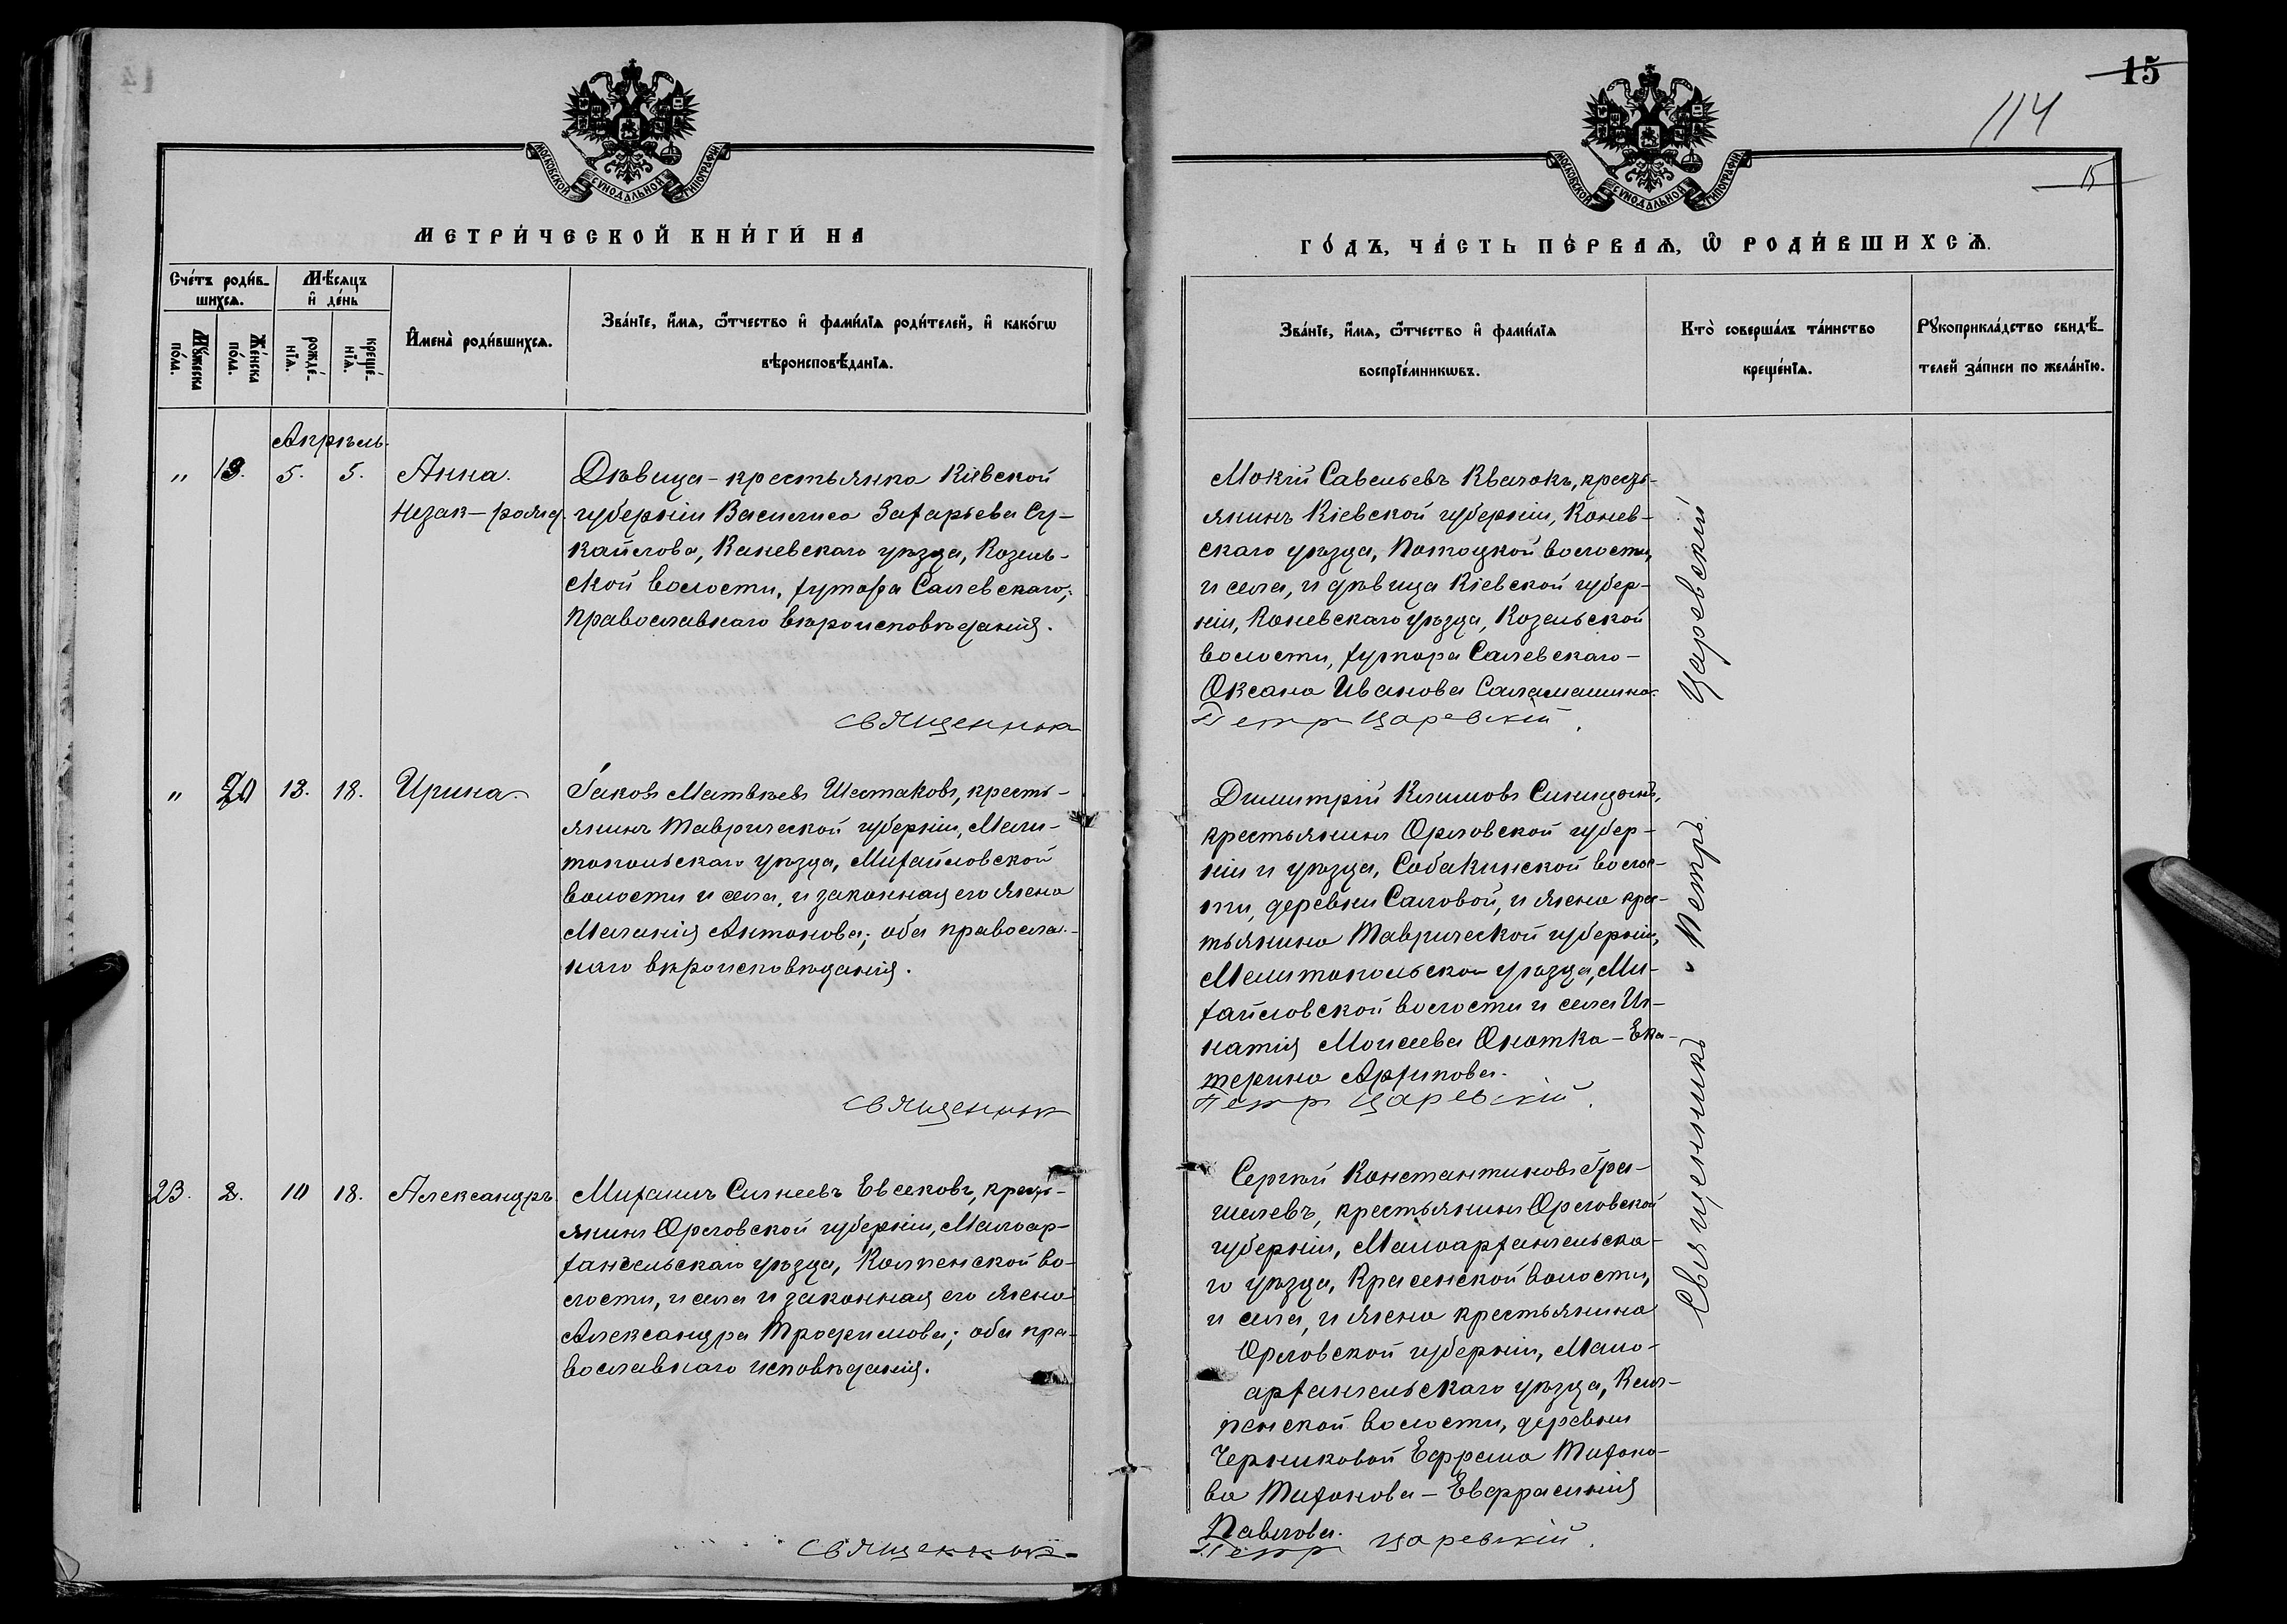 15
114
15
МОСКОВСКОЙ СѴНОДАЛЬНОЙ ТИПОГРАФІИ
МЕТРИ́ЧЕСКОЙ КНИ́ГИ НА
Сче́тъ роди́в-
шихсѧ.
Мѣ́сѧцъ
и҆ де́нь
Мꙋ́жеска
по́ла.
Же́нска
по́ла.
рожде́-
нїѧ.
креще́-
нїѧ.
И҆мена̀ роди́вшихсѧ.
Зва́нїе, и҆́мѧ, ѻ҆́тчество и҆ фами́лїѧ роди́телей, и҆ како́гѡ
вѣроисповѣ́данїѧ.
Апрѣль.
" 19. 5. 5. Анна.
Незак-рожд.
Дѣвица - крестьянка Кіевской
губерніи Василиса Захарьева Су-
кайлова, Каневскаго уѣзда, Козель-
ской волости, хутора Салевскаго;
православнаго вѣроисповѣданія.
Священник
" 20 13. 18. Ирина.
Іаковъ Матвѣевъ Шестаковъ, кресть-
янинъ Таврической губерніи, Мели-
топольскаго уѣзда, Михайловской
волости и села, и законная его жена
Меланія Антонова; оба правосла-
наго вѣроисповѣданія.
Священник
23. 2. 10 18. Александръ
Михаилъ Евсековъ, кресть-
янинъ Орловской губерніи, Малоар-
хангельскаго уѣзда, Колпенской во-
лости, и села и законная его жена
Александра Трофимова; оба пра-
вославнаго исповѣданія.
Священник
МОСКОВСКОЙ СѴНОДАЛЬНОЙ ТИПОГРАФІИ
ГО́ДЪ, ЧА́СТЬ ПЕ́РВАѦ, Ѡ҆ РОДИ́ВШИХСѦ.
Зва́нїе, и҆́мѧ, ѻ҆́тчество и҆ фами́лїѧ
воспрїе́мникѡвъ.
Кто̀ соверша́лъ та́инство
креще́нїѧ.
Рꙋкоприкла́дство свидѣ́-
телей за́писи по жела́нїю.
Мокій Савельевъ Квачокъ, кресть-
янинъ Кіевской губерніи, Канев-
скаго уѣзда, Потоцкой волости,
и села, и дѣвица Кіевской губер-
ніи, Каневскаго уѣзда, Козельской
волости, хутора Салевскаго -
Оксана Иванова Саламашина.
Петр Царевскій.
Димитрій Климовъ
крестьянинъ Орловской губер-
ніи и уѣзда, Собакинской волос-
ти, деревни Саловой, и жена крес-
тьянина Таврической губерніи,
Мелитопольскаго уѣзда, Ми-
хайловской волости и села Иг-
натія Моисеева Онотка - Ека-
терина Архипова.
Петр Царевскій.
Сергѣй Константиновъ Гре-
шелевъ, крестьянинъ Орловской
губерніи, Малоархангельска-
го уѣзда, Красенской волости,
и села, и жена крестьянина
Орловской губерніи, Мало-
архангельскаго уѣзда, Кол-
пенской волости, деревни
Черниковой Ефрема Тихоно-
ва Тихонова - Евфрасинія
Павлова.
Петр Царевскій.
Священникъ Петръ Царевскій